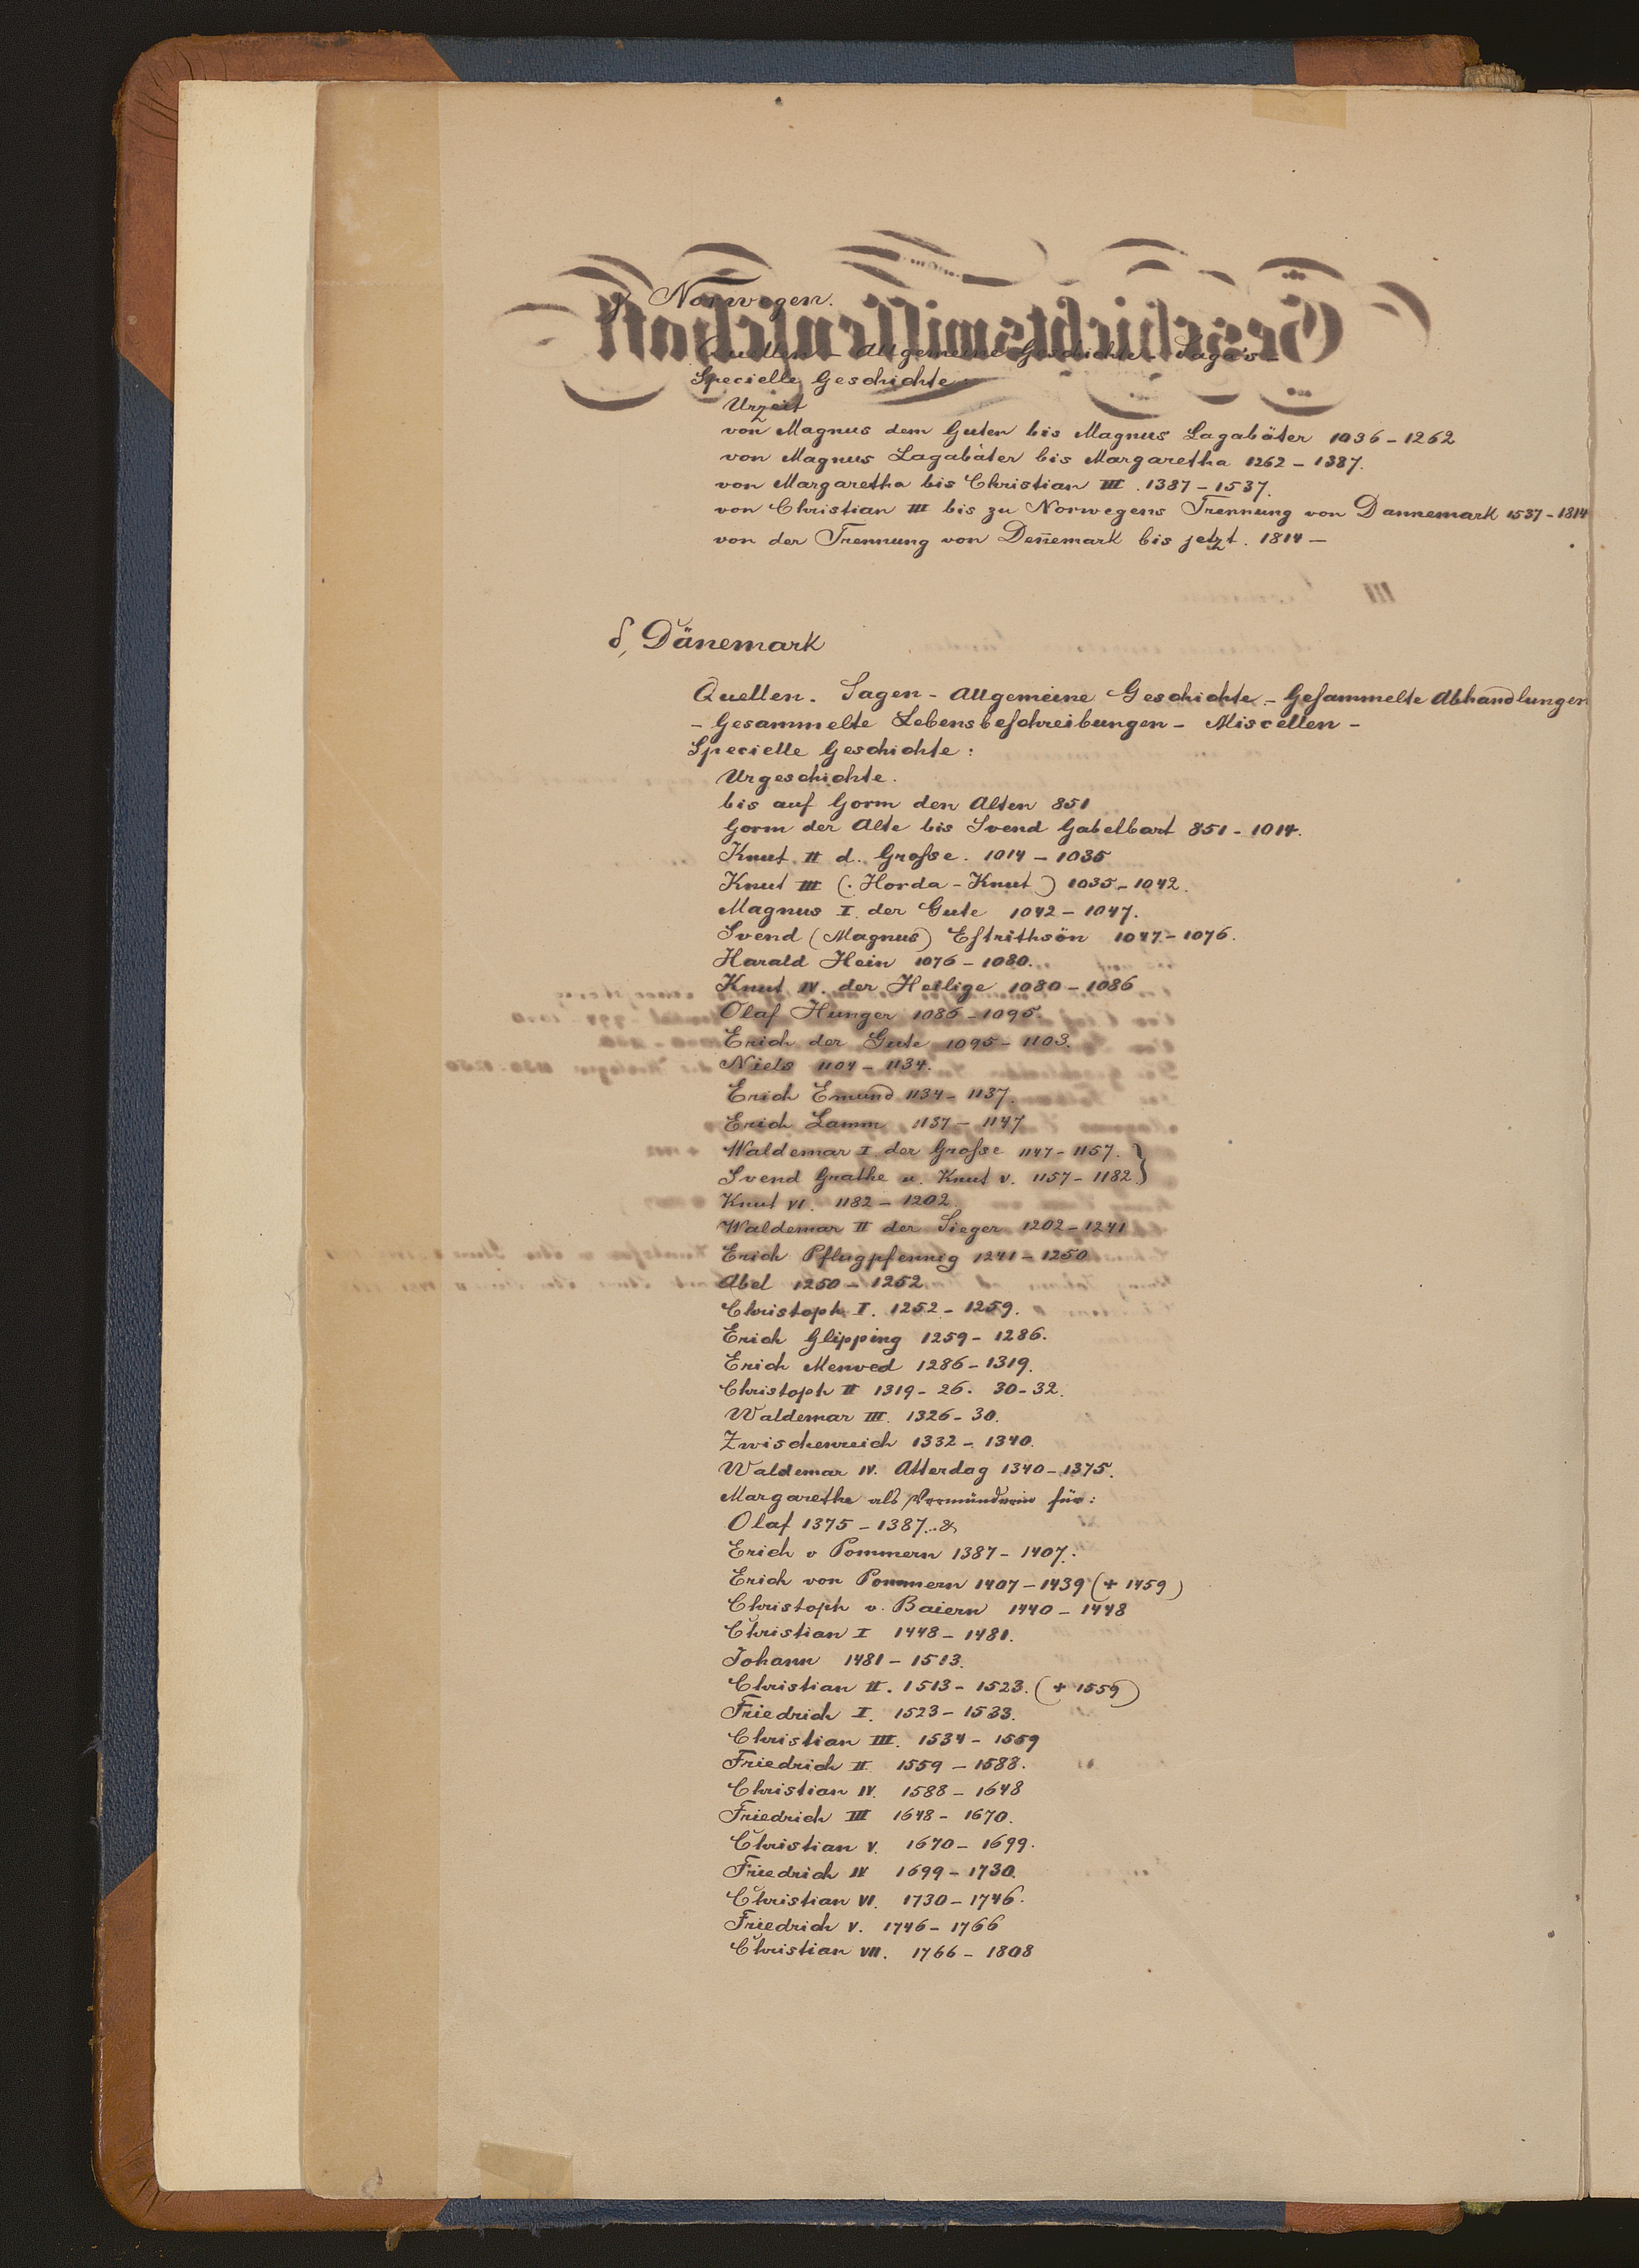 γ Norwegen.
Quellen - Allgemeine Geschichte - Saga's -
Specielle Geschichte:
Urzeit
von Magnus dem Guten bis Magnus Lagabäter 1036-1262
von Magnus Lagabäter bis Margaretha 1262-1387.
von Margaretha bis Christian III. 1387-1537.
von Christian III bis zu Norwegens Trennung von Dannemark 1537-1814
von der Trennung von Deñemark bis jetzt. 1814-
III
δ, Dänemark
Quellen. Sagen - Allgemeine Geschichte - Gesammelte Abhandlungen
- Gesammelte Lebensbeschreibungen - Miscellen -
Specielle Geschichte:
Urgeschichte.
bis auf Gorm den Alten 851
Gorm der Alte bis Svend Gabelbart 851-1014.
Knut II d. Große. 1014-1035
Knut III (Horda-Knut) 1035-1042.
Magnus I. der Gute 1042-1047.
Svend (Magnus) Estrithsön 1047-1076.
Harald Hein 1076-1080.
Knut IV. der Heilige 1080-1086
Olaf Hunger 1086-1095.
Erich der Gute 1095-1103.
Niels 1104-1134.
Erich Emund 1134-1137.
Erich Lamm 1137-1147
Waldemar I der Große 1147-1157. }
Svend Grathe u. Knut V. 1157-1182 }
Knut VI. 1182-1202
Waldemar II der Sieger 1202-1241
Erich Pflugpfennig 1241-1250
Abel 1250-1252
Christoph I. 1252-1259.
Erich Glipping 1259-1286.
Erich Menved 1286-1319.
Christoph II 1319-26. 30-32.
Waldemar III. 1326-30.
Zwischenreich 1332-1340.
Waldemar IV. Atterdag 1340-1375.
Margarethe als Vormünderin für:
Olaf 1375-1387. &
Erich v Pommern 1387-1407.
Erich von Pommern 1407-1439 (+ 1459)
Christoph v. Baiern 1440-1448
Christian I 1448-1481.
Johann 1481-1513.
Christian II. 1513-1523. (+ 1559)
Friedrich I. 1523-1533.
Christian III. 1534-1559
Friedrich II. 1559-1588.
Christian IV. 1588-1648
Friedrich III 1648-1670.
Christian V. 1670-1699.
Friedrich IV 1699-1730.
Christian VI. 1730-1746.
Friedrich V. 1746-1766
Christian VII. 1766-1808